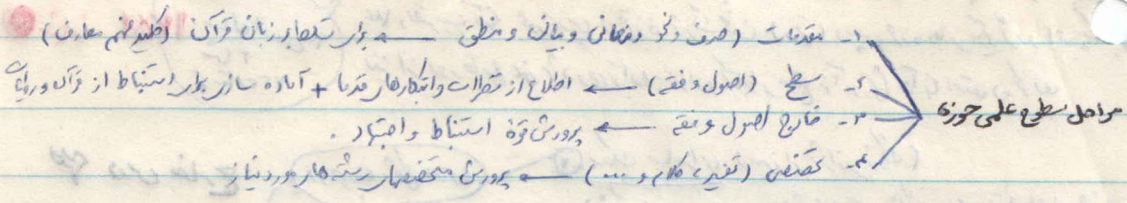 ۱- مقدمات (صرف و نحو و معانی و بیان و منطق ← برای تسلط بر زبان قرآن (کلید فهم معارف)
۲- سطح (اصول و فقه) ← اطلاع از نظرات و ابتکارهای قدما + آماده سازی برای استنباط از قرآن و روایات
مراحل سطوح علمی حوزه
۳- خارج اصول و فقه ← پرورش قوة استنباط و اجتهاد.
۴- تخصص (تفسیر، کلام و ...) ← پرورش متخصصهای رشته های مورد نیاز